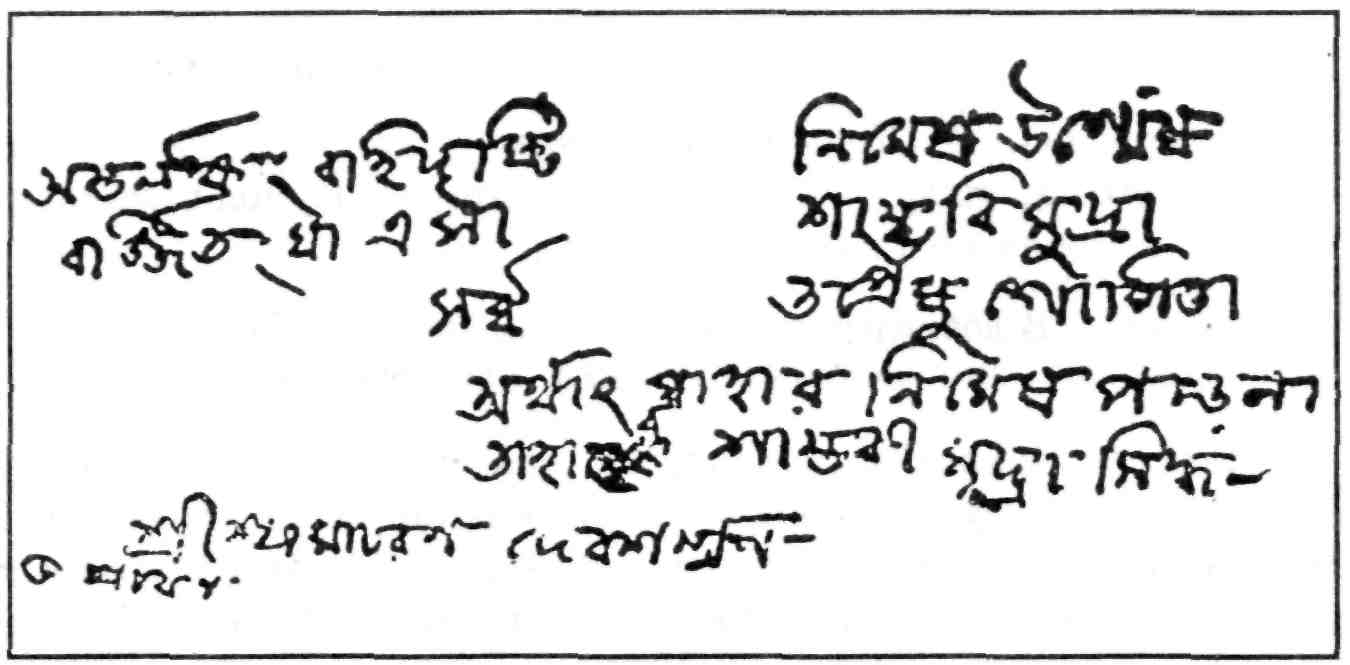 অন্তর্লক্ষ্যং বহির্দৃষ্টি নিমেষ উন্মেষ
বর্জ্জিতং যা এ সা শাম্ভবি মুদ্রা
সর্ব্ব গোপিতা
অর্থাৎ যাহার নিমেষ পড়েনা
তাহার শাম্ভবী মুদ্রা সিদ্ধ-
শ্রী দেবশর্ম্মণ-